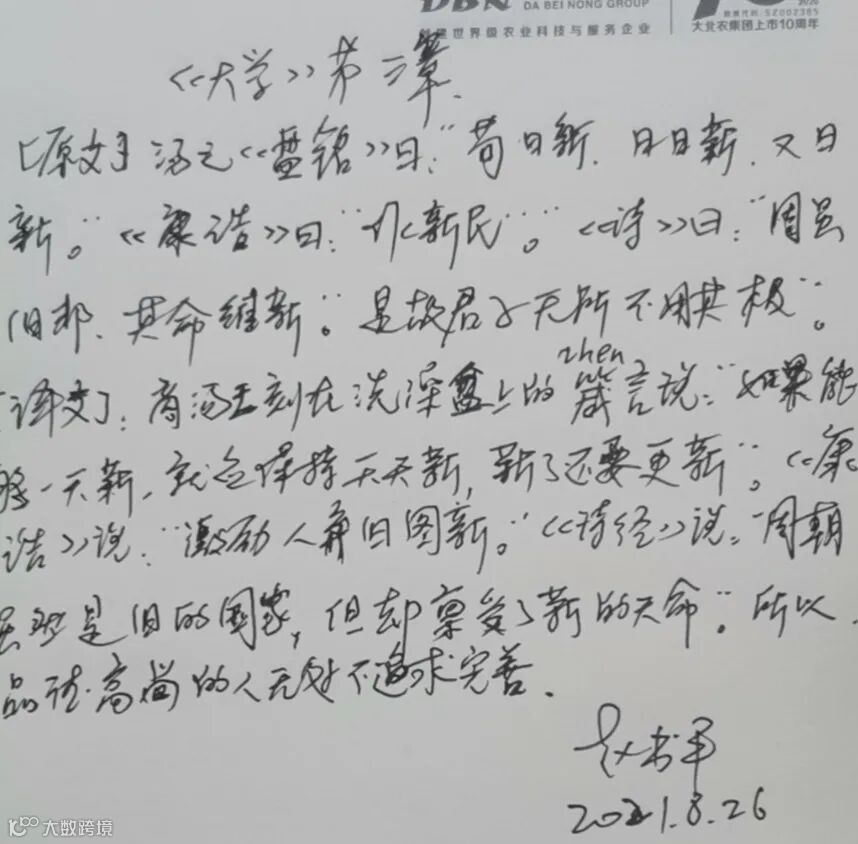 DBN DA BEI NONG GROUP
创建世界级农业科技与服务企业
股票代码:SZ002385
大北农集团上市10周年
《大学》第三章.
[原文] 汤之《盘铭》曰:"苟日新.日日新.又日
新。"《康诰》曰:"作新民"。《诗》曰:"周虽
旧邦、其命维新"。是故君子无所不用其极"。
[译文]:商汤王刻在洗澡盘上的箴言说:"如果能
zhen
够一天新、就应保持天天新,新了还要更新"。《康
诰》说:"激励人弃旧图新。"《诗经》说:"周朝
虽然是旧的国家,但却禀受了新的天命"。所以、
品德高尚的人无处不追求完善.
赵书军
2021.8.26
大数跨境